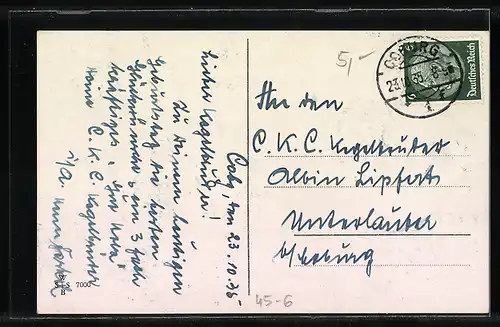 Cobg, den 23.10.35
Lieber Kegelbruder!
Zu Deinem heutigen
Geburtstag die besten
Glückwünsche u. ein 3 fach
kräftiges "Gut Holz"
Deine C.K.C. Kegelbrüder
i/A.
5,-
COBURG
23.10.35
Deutsches Reich
6
An den
C.K.C. Kegelbruder
Albin Lipfert
Unterlauter
b/Coburg
7000
45-6